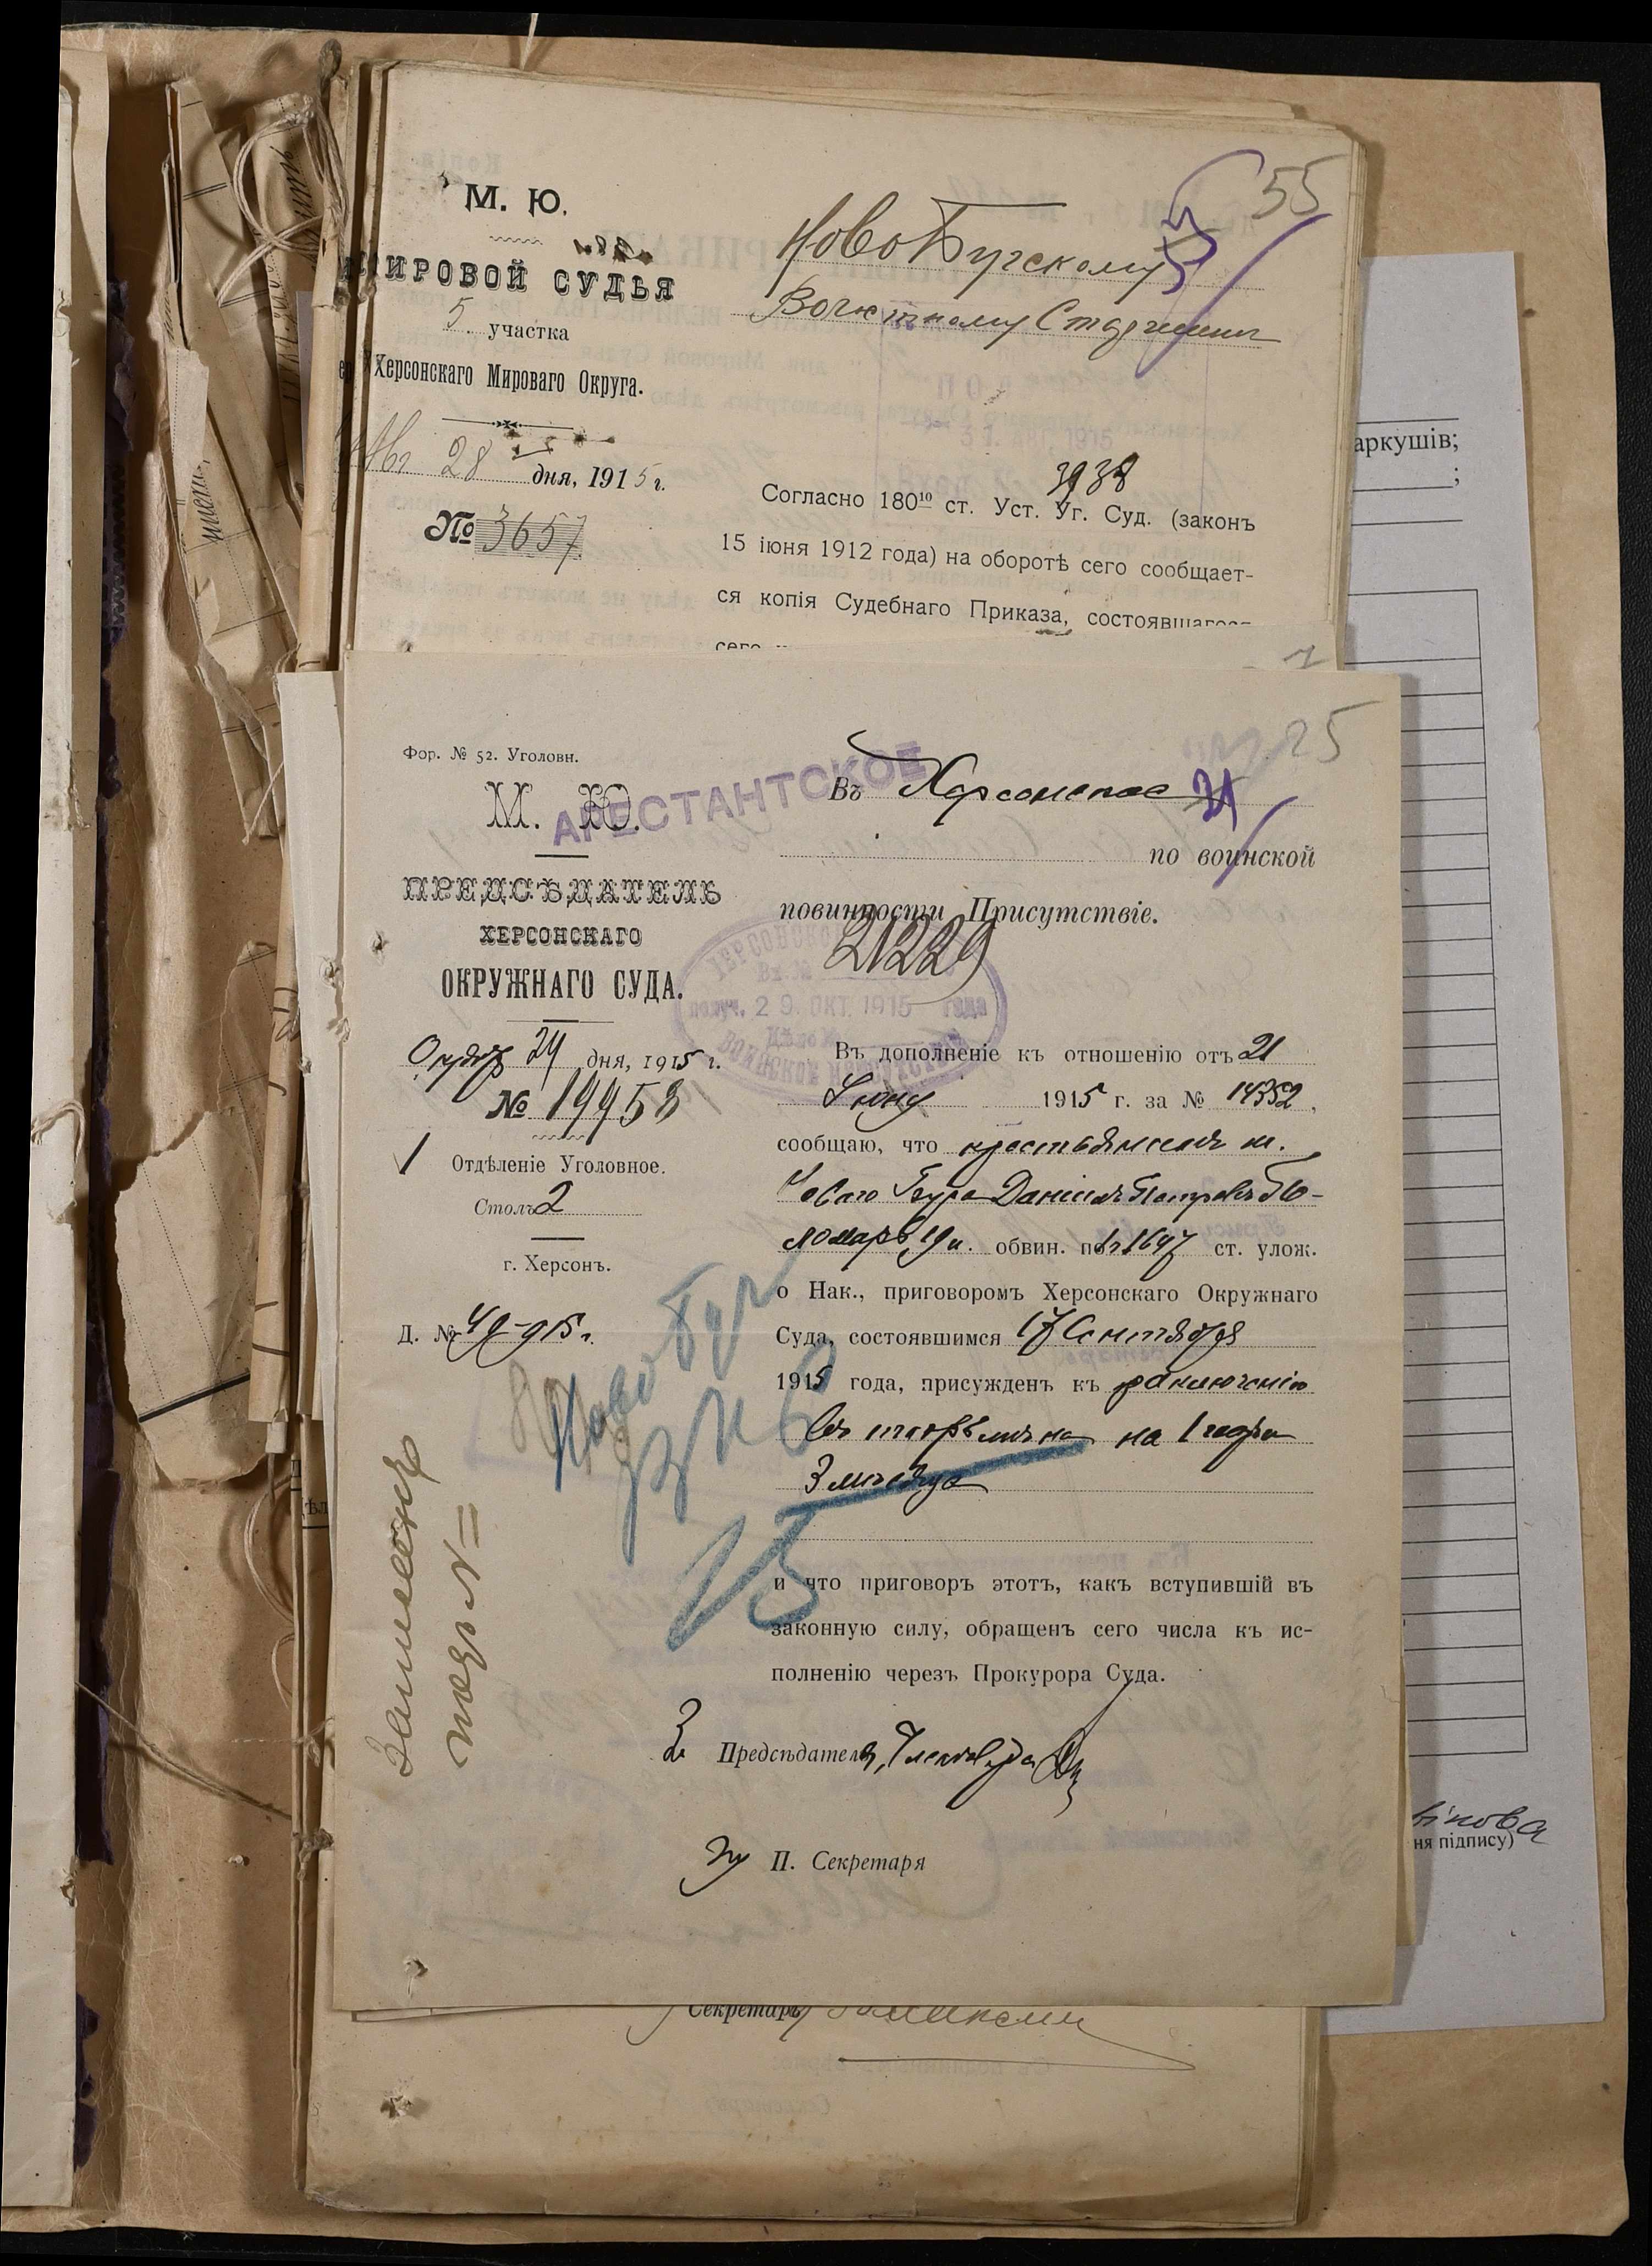 55
М. Ю.
МИРОВОЙ СУДЬЯ
5. участка
Херсонскаго Мироваго Округа.
28 дня, 1915 г.
№ 3657
НовоБугскому
Волостному Старшине
3938
Согласно 180¹⁰ ст. Уст. Уг. Суд. (законъ
15 іюня 1912 года) на оборотѣ сего сообщает-
ся копія Судебнаго Приказа, состоявшагося
сего
аркушів;
;
25
Фор. № 52. Уголовн.
М. Ю.
АРЕСТАНТСКОЕ
ПРЕДСѢДАТЕЛЬ
ХЕРСОНСКАГО
ОКРУЖНАГО СУДА.
Октяб 24 дня, 1915 г.
№ 19958
Отдѣленіе Уголовное.
Столъ 2
г. Херсонъ.
Д. № 49-915 г.
Въ Херсонское
по воинской
повинности Присутствіе.
21229
получ. 29. ОКТ. 1915 года
Въ дополненіе къ отношенію отъ 21
Іюня 1915 г. за № 14352,
сообщаю, что крестьянинъ м.
Новаго Буга Даніилъ Петровъ По-
номарь 19 л. обвин. по 1647 ст. улож.
о Нак., приговоромъ Херсонскаго Окружнаго
Суда, состоявшимся 17 Сентября
1915 года, присужденъ къ заключенію
въ тюрьмѣ на 1 годъ
3 мѣсяца
и что приговоръ этотъ, какъ вступившій въ
законную силу, обращенъ сего числа къ ис-
полненію черезъ Прокурора Суда.
Ново Буг
15
За Предсѣдателя, Членъ Суда
За П. Секретаря
Секретарь
нікова
ня підпису)